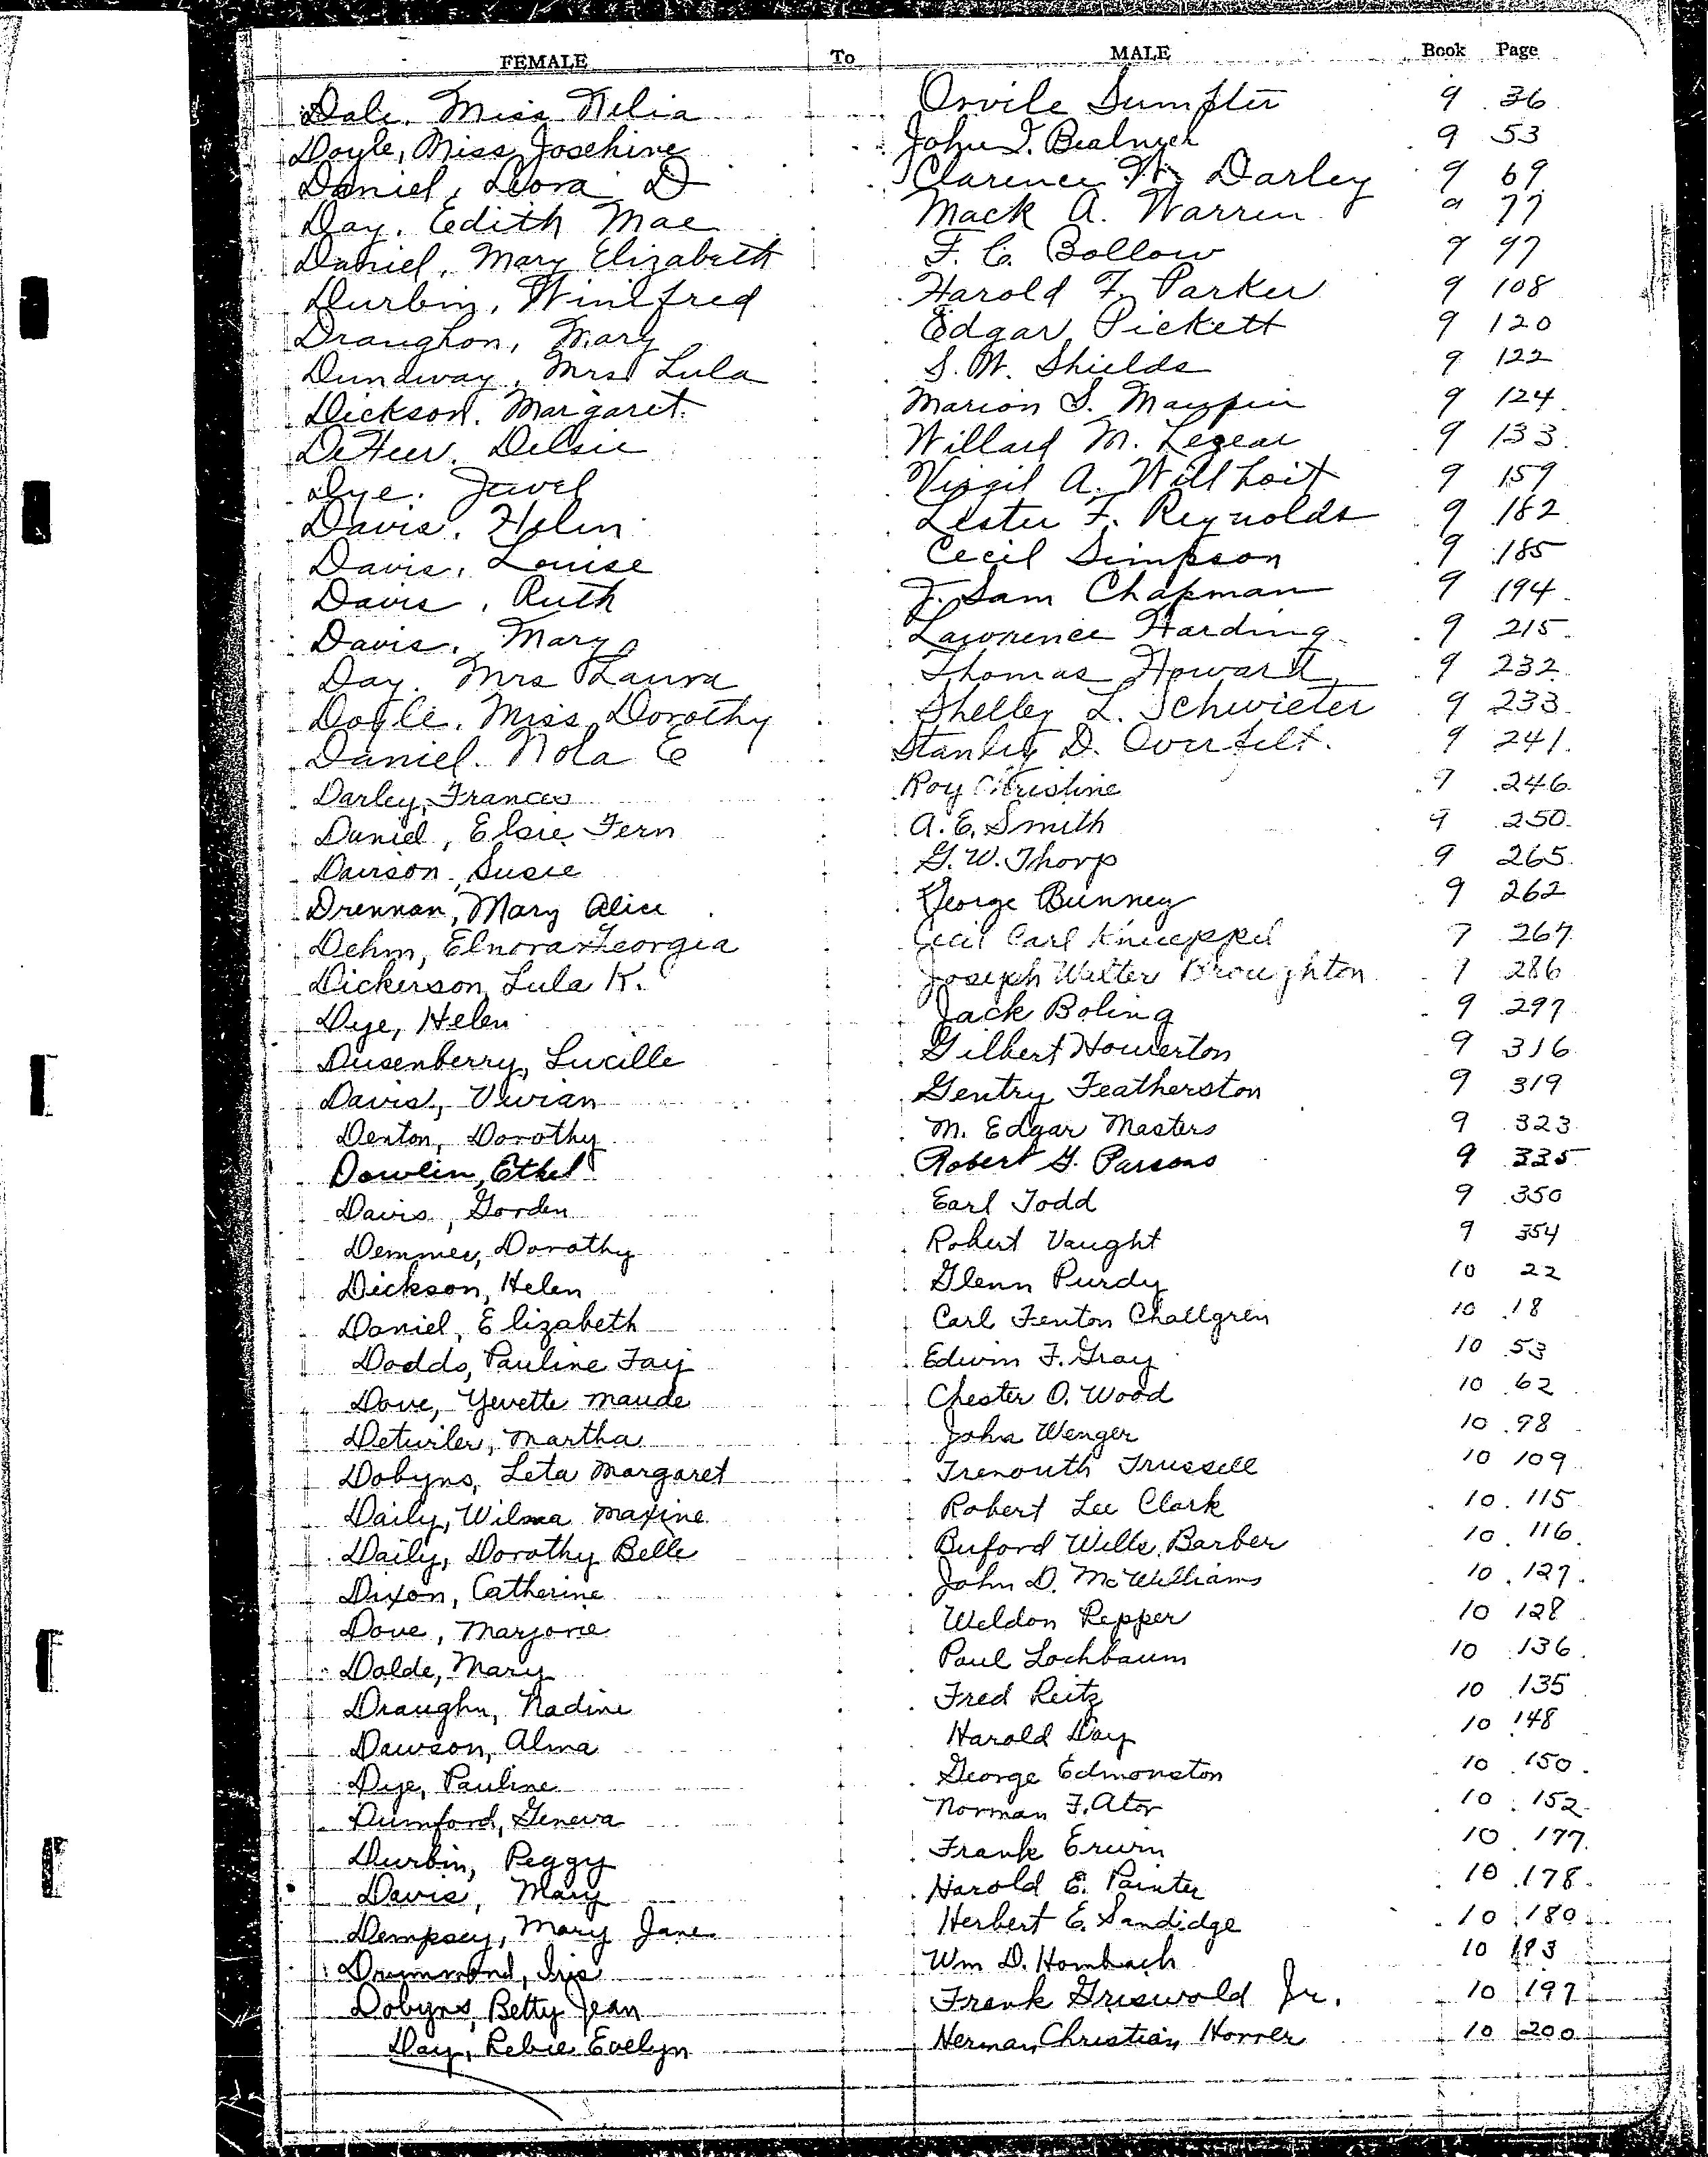 FEMALE To MALE Book Page
Dale, Miss Nelia Orvile Sumpter 9 36
Doyle, Miss Josehine John T. 9 53
Daniel, Leora D Clarence W. Darley 9 69
Day, Edith Mae Mack A. Warren 9 77
Daniel, Mary Elizabeth F. C. Bollow 9 97
Durbin, Winifred Harold F. Parker 9 108
Draughon, Mary Edgar Pickett 9 120
Dunaway, Mrs Lula S. W. Shields 9 122
Dickson, Margaret Marion S. Maupin 9 124
DeHeer, Delsie Willard M. Legear 9 133
Dye, Jewel Virgil A. Willhoit 9 159
Davis, Helen Lester F. Reynolds 9 182
Davis, Louise Cecil Simpson 9 185
Davis, Ruth J. Sam Chapman 9 194
Davis, Mary Lawrence Harding 9 215
Day, Mrs Laura Thomas Howard 9 232
Doyle, Miss Dorothy Shelley L. Schwieter 9 233
Daniel, Nola E Stanley D. Overfelt 9 241
Darley, Frances Roy Christine 9 246
Daniel, Elsie Fern A. E. Smith 9 250
Davison, Susie G. W. Thorp 9 265
Drennan, Mary Alice George Bunney 9 262
Dehm, Elnora Georgia Cecil Carl Knueppel 9 267
Dickerson, Lula K. Joseph Walter Broughton 9 286
Dye, Helen Jack Boling 9 297
Dusenberry, Lucille Gilbert Howerton 9 316
Davis, Vivian Gentry Featherston 9 319
Denton, Dorothy M. Edgar Masters 9 323
Dowlin, Ethel Robert G. Parsons 9 335
Davis, Gorden Earl Todd 9 350
Demmer, Dorothy Robert Vaught 9 354
Dickson, Helen Glenn Purdy 10 22
Daniel, Elizabeth Carl Fenton Challgren 10 18
Dodds, Pauline Fay Edwin F. Gray 10 53
Dove, Yevette Maude Chester O. Wood 10 62
Detwiler, Martha John Wenger 10 98
Dobyns, Leta Margaret Trenouth Trussell 10 109
Daily, Wilma Maxine Robert Lee Clark 10 115
Daily, Dorothy Belle Buford Wells Barber 10 116
Dixon, Catherine John D. McWilliams 10 127
Dove, Marjorie Weldon Repper 10 128
Dalde, Mary Paul Lochbaum 10 136
Draughn, Nadine Fred Reitz 10 135
Dawson, Alma Harold Day 10 148
Dye, Pauline George Edmonston 10 150
Dumford, Geneva Norman F. Ator 10 152
Durbin, Peggy Frank Erwin 10 177
Davis, Mary Harold E. Painter 10 178
Dempsey, Mary Jane Herbert E. Sandidge 10 180
Drummond, Iris Wm D. Hombach 10 183
Dobyns, Betty Jean Frank Griswold Jr. 10 197
Day, Rebie Evelyn Herman Christian Horrer 10 200